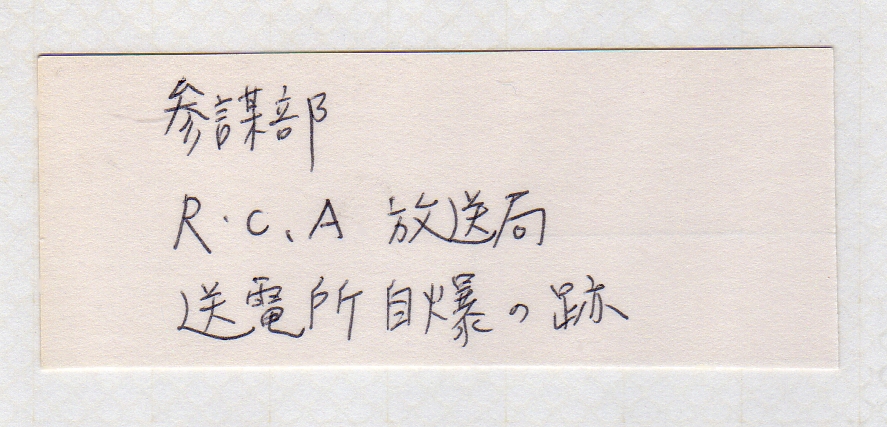 参謀部
R.C、A 放送局
送電所自爆の跡